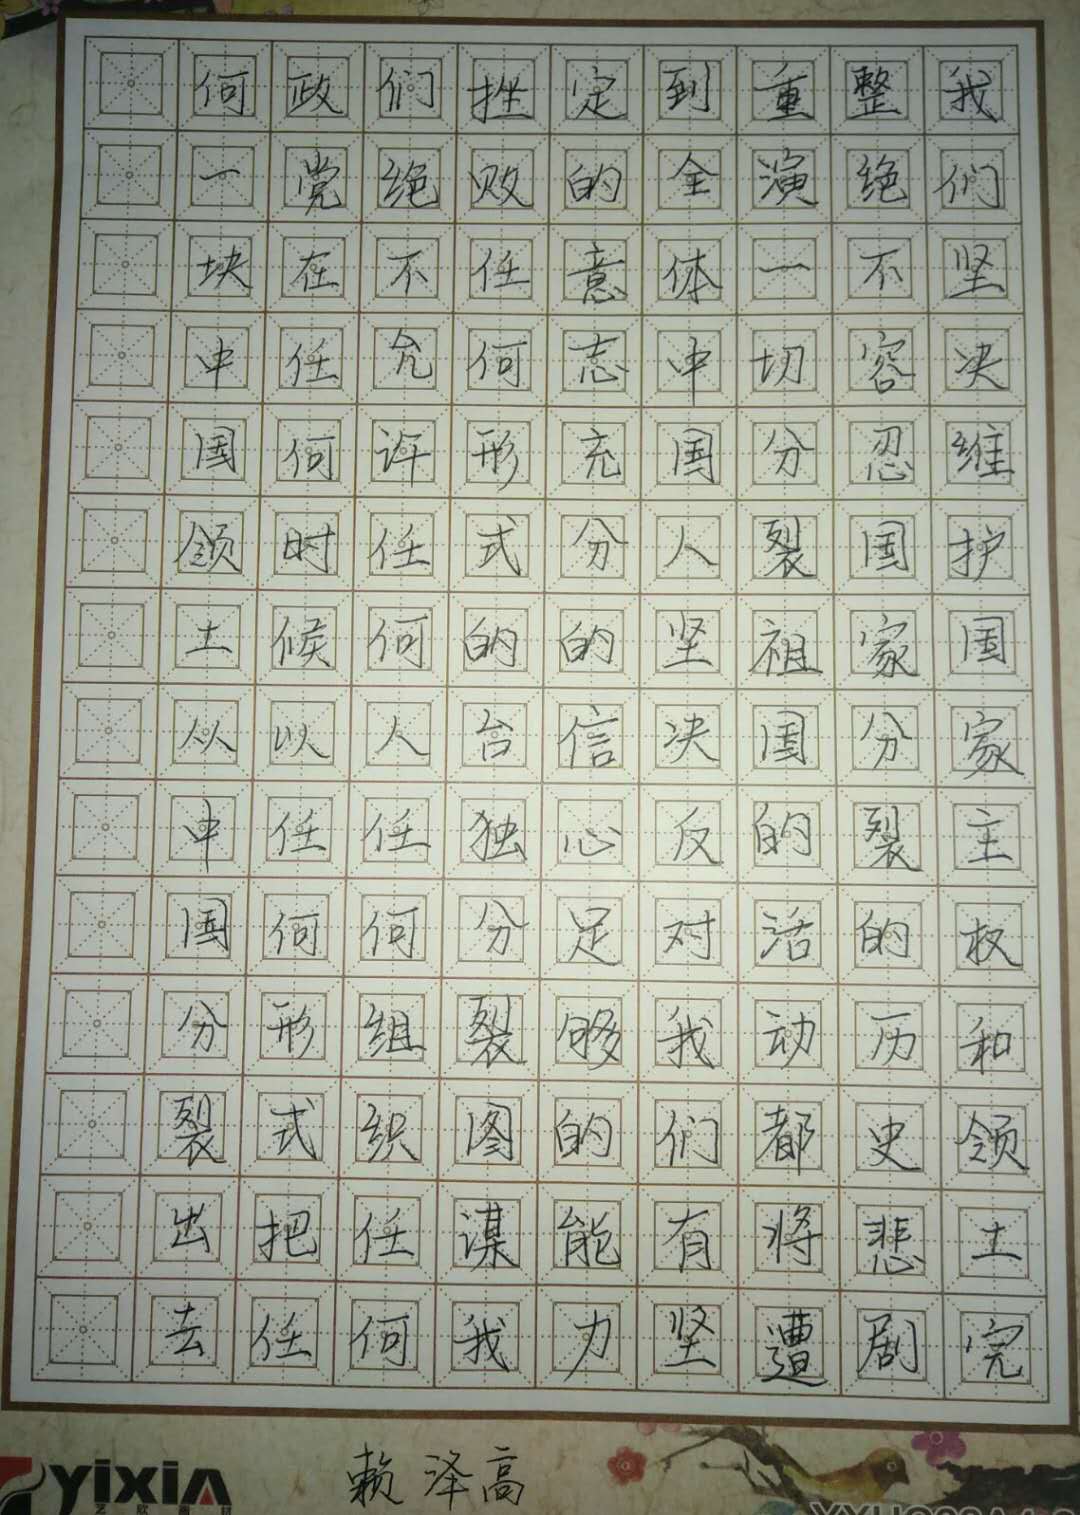 我们坚决维护国家主权和领土完
整绝不容忍国家分裂的历史悲剧
重演一切分裂祖国的活动都将遭
到全体中国人坚决反对我们有坚
定的意志充分的信心足够的能力
挫败任何形式的台独分裂图谋我
们绝不允许任何人任何组织任何
政党在任何时候以任何形式把任
何一块中国领土从中国分裂出去
赖泽高
YiXiA